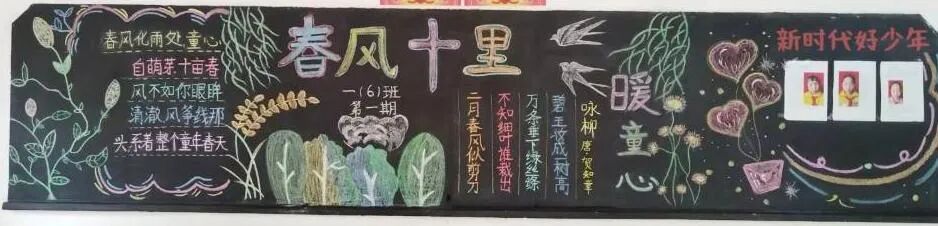 春风化雨处童心
自萌芽十亩春
风不如你眼眸
清澈风筝线那
头系着整个童年春天
春风十里
一(6)班
第一期
咏柳 唐·贺知章
碧玉妆成一树高
万条垂下绿丝绦
不知细叶谁裁出
二月春风似剪刀
暖童心
新时代好少年